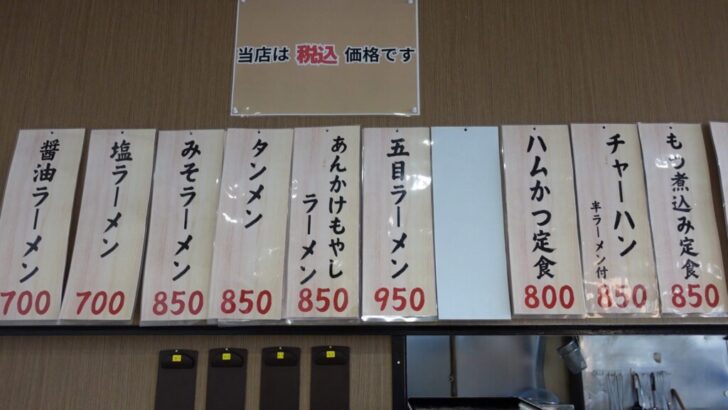 当店は 税込 価格です
醤油ラーメン
700
塩ラーメン
700
みそラーメン
850
タンメン
850
あんかけもやし
ラーメン
850
五目ラーメン
950
ハムかつ定食
800
チャーハン
半ラーメン付
850
もつ煮込み定食
850